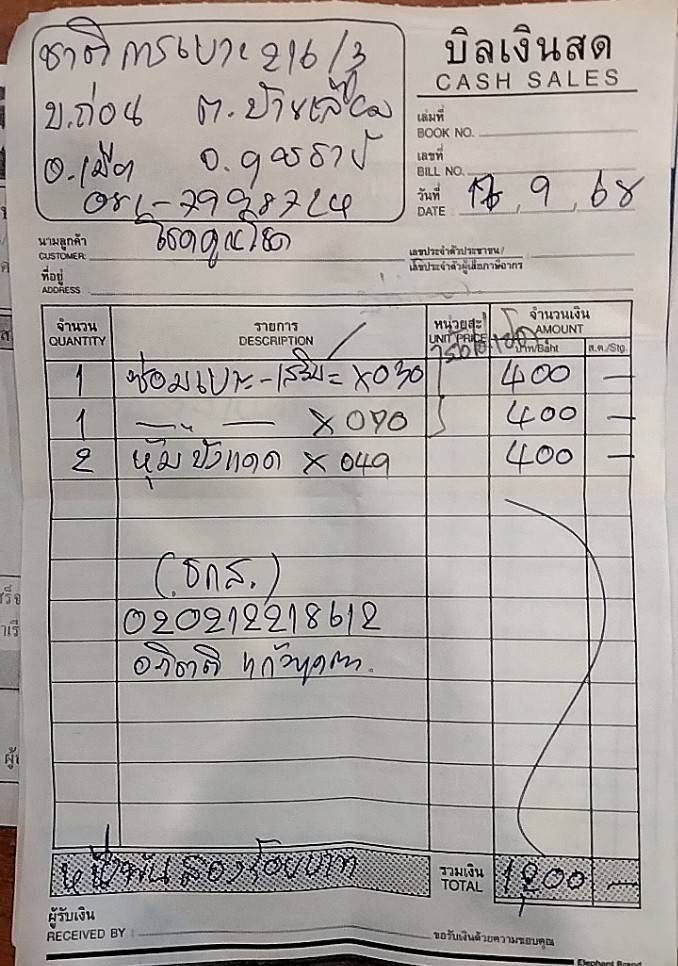 ชาติการเบาะ 216/3
บ.ถ่อน ต.บ้านเลื่อม
อ.เมือง จ.อุดรธานี
บิลเงินสด
CASH SALES
เล่มที่
BOOK NO.
เลขที่
BILL NO.
วันที่
DATE 17, 9, 68
นามลูกค้า
CUSTOMER
เลขประจำตัวประชาชน/
เลขประจำตัวผู้เสียภาษีอากร
ที่อยู่
ADDRESS
จำนวน รายการ หน่วยละ จำนวนเงิน
QUANTITY DESCRIPTION UNIT PRICE AMOUNT
บาท/Baht ส.ต./Stg.
1 ซ่อมเบาะ-เสริม = X030 400 —
1 — " — X070 400 —
2 หุ้มบังแดด X049 400 —
(ธกส.)
020212218612
อภิชาติ
หนึ่งพันสองร้อยบาท รวมเงิน 1,200 —
TOTAL
ผู้รับเงิน
RECEIVED BY : ขอรับเงินด้วยความขอบคุณ
Elephant Brand